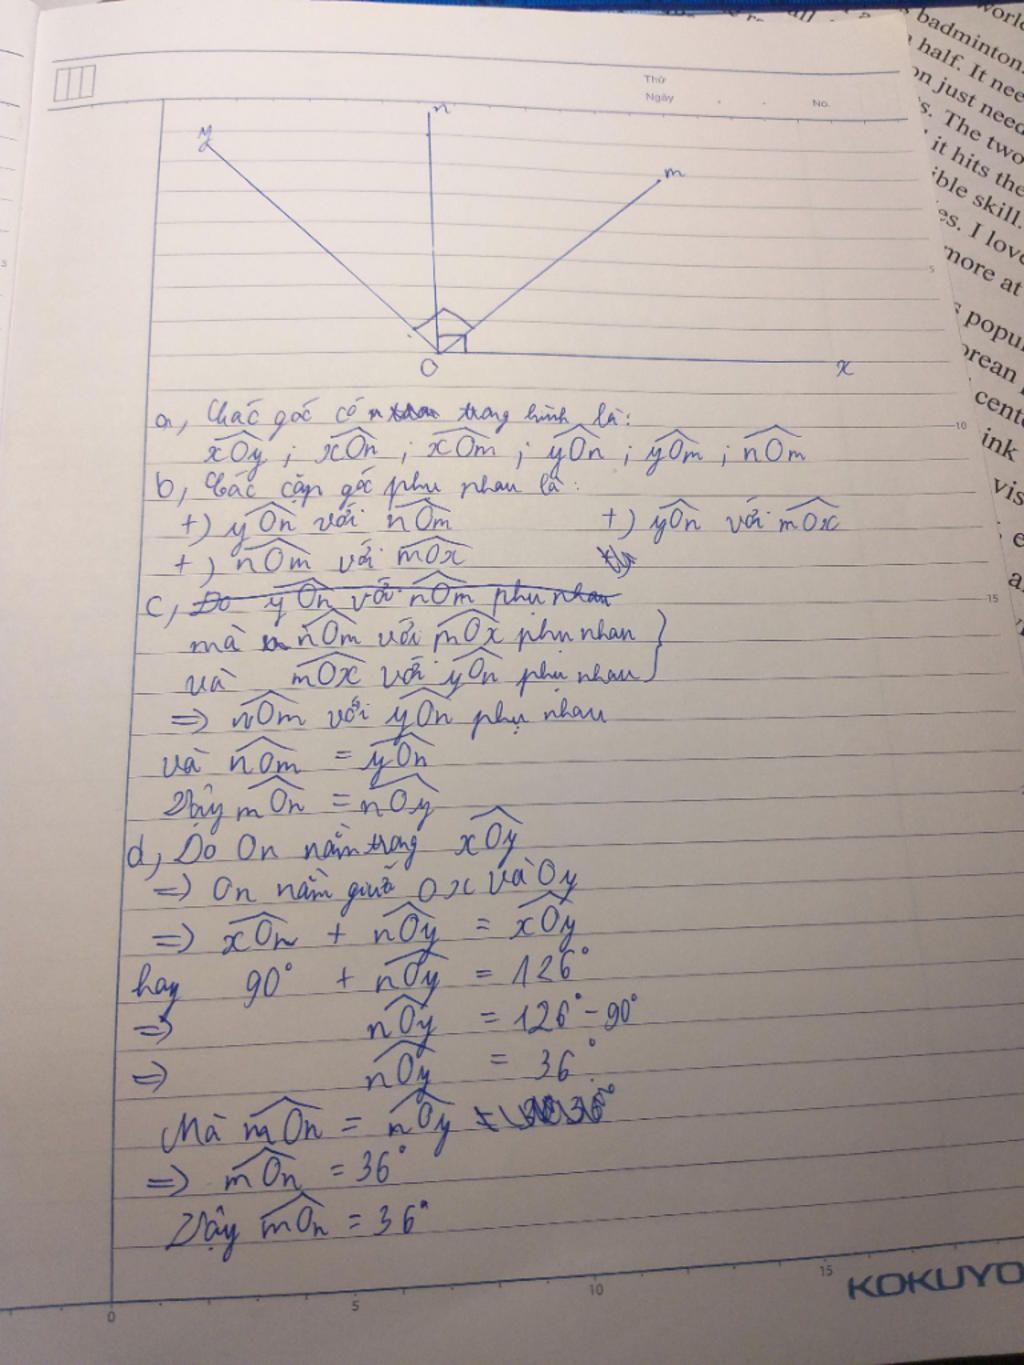 Thứ
Ngày
No.
y
n
m
O
x
a, Các góc có trong hình là:
xOy ; xOn ; xOm ; yOn ; yOm ; nOm
b, Các cặp góc phụ nhau là:
+) yOn với nOm +) yOn với mOx
+) nOm với mOx
c, Do yOn với nOm phụ nhau
mà nOm với mOx phụ nhau
và mOx với yOn phụ nhau
=> nOm với yOn phụ nhau
và nOm = yOn
Vậy mOn = nOy
d, Do On nằm trong xOy
=> On nằm giữa Ox và Oy
=> xOn + nOy = xOy
hay 90° + nOy = 126°
=> nOy = 126° - 90°
=> nOy = 36°
Mà mOn = nOy
=> mOn = 36°
Vậy mOn = 36°
0 5 10 15
KOKUYO
5
10
15
world
badminton.
half. It nee
on just need
s. The two
it hits the
ible skill.
es. I love
more at
popul
orean
cent
ink
vis